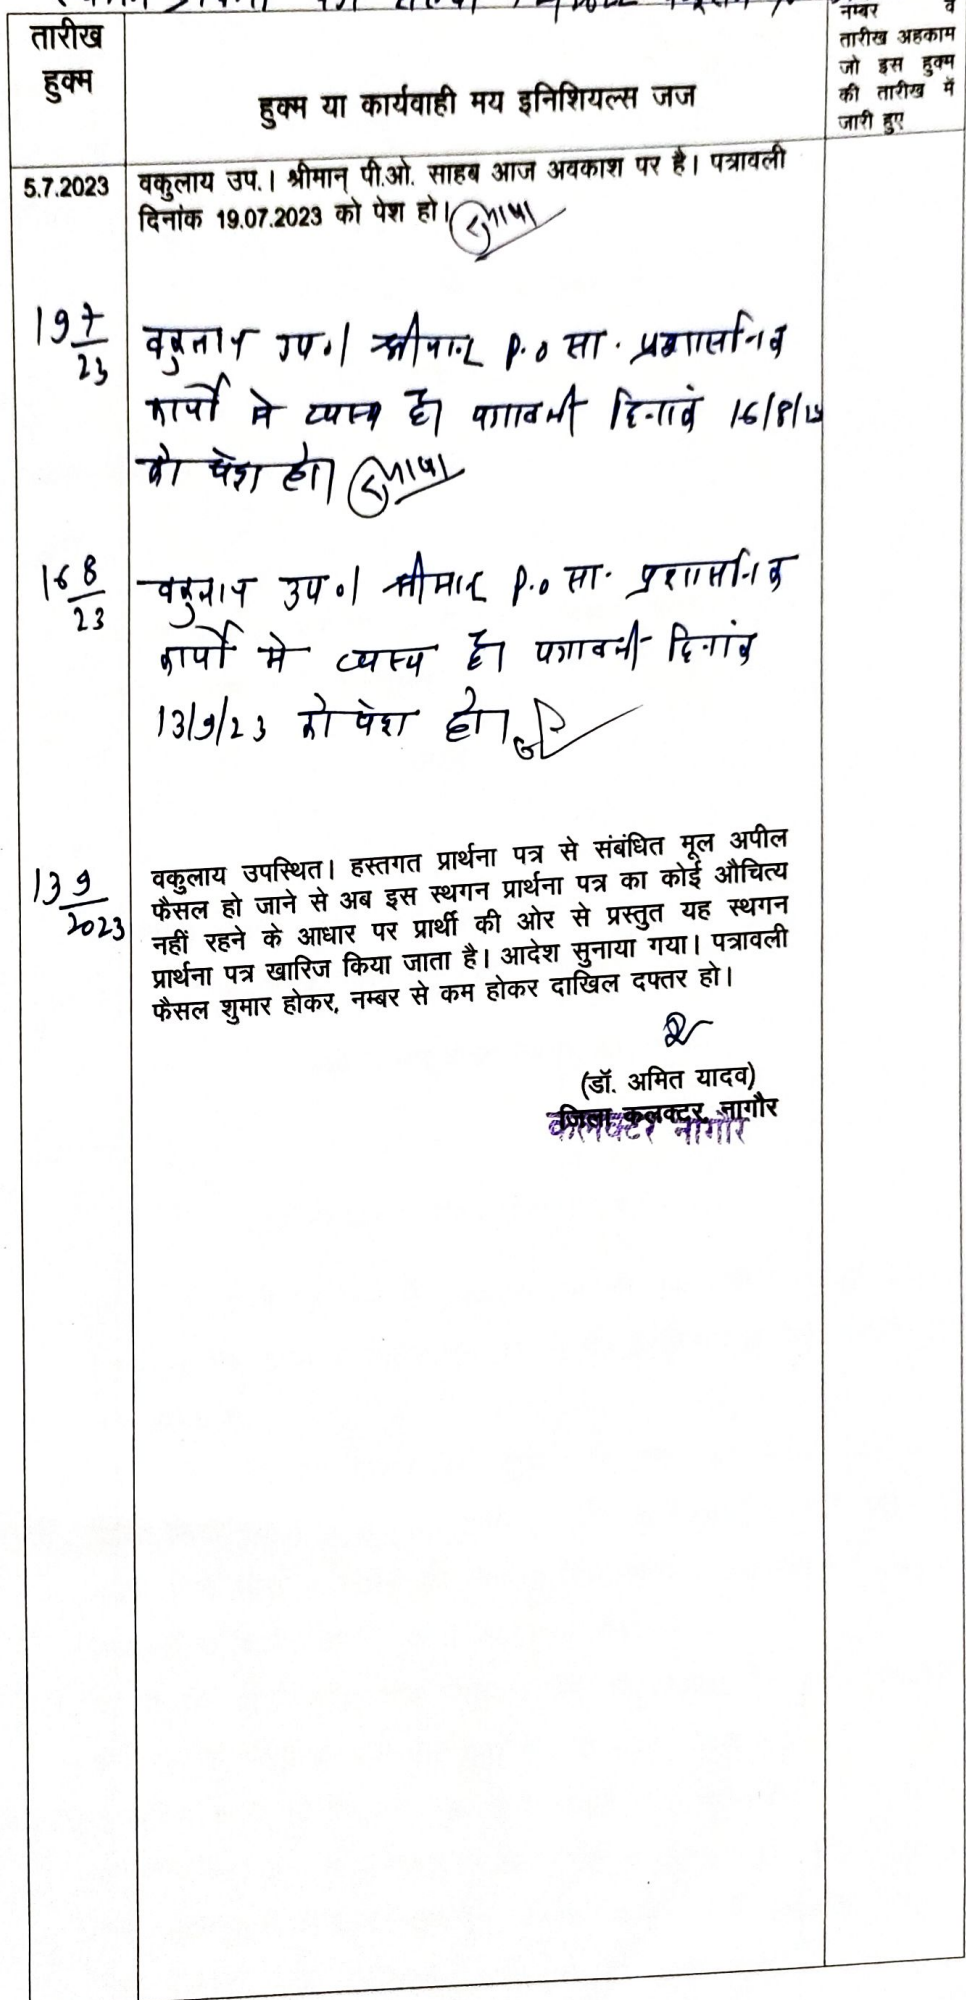 तारीख
हुक्म
हुक्म या कार्यवाही मय इनिशियल्स जज
नम्बर व
तारीख अहकाम
जो इस हुक्म
की तारीख में
जारी हुए
5.7.2023
वकुलाय उप.। श्रीमान् पी.ओ. साहब आज अवकाश पर है। पत्रावली
दिनांक 19.07.2023 को पेश हो।
19 7/23
वकुलाय उप०। श्रीमान् P.o सा. प्रशासनिक
कार्यो मे व्यस्थ है। पत्रावली दिनांक 16/8/23
को पेश हो।
16 8/23
वकुलाय उप०। श्रीमान् P.o सा. प्रशासनिक
कार्यो मे व्यस्थ है। पत्रावली दिनांक
13/9/23 को पेश हो।
13 9/2023
वकुलाय उपस्थित। हस्तगत प्रार्थना पत्र से संबंधित मूल अपील
फैसल हो जाने से अब इस स्थगन प्रार्थना पत्र का कोई औचित्य
नहीं रहने के आधार पर प्रार्थी की ओर से प्रस्तुत यह स्थगन
प्रार्थना पत्र खारिज किया जाता है। आदेश सुनाया गया। पत्रावली
फैसल शुमार होकर, नम्बर से कम होकर दाखिल दफ्तर हो।
(डॉ. अमित यादव)
जिला कलक्टर, नागौर
कलक्टर नागौर